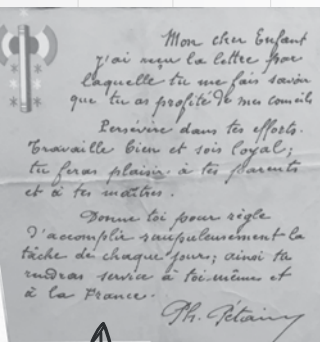 Mon cher Enfant
j'ai reçu la lettre par
laquelle tu me fais savoir
que tu as profité de mes conseils
Persévère dans tes efforts.
Travaille bien et sois loyal;
tu feras plaisir à tes parents
et à tes maîtres.
Donne toi pour règle
d'accomplir scrupuleusement la
tâche de chaque jour; ainsi tu
rendras service à toi-même et
à la France.
Ph. Pétain